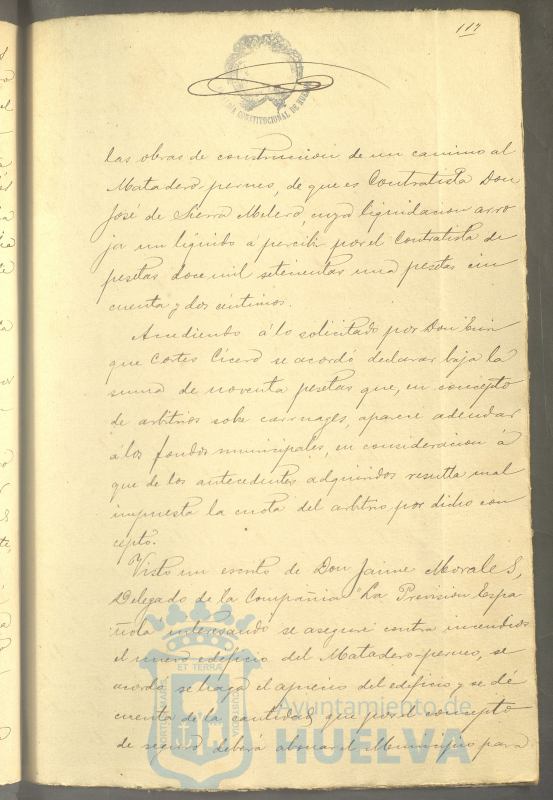 117
ALCALDIA CONSTITUCIONAL DE HUELVA
las obras de construccion de un camino al
Matadero-perneo, de que es Contratista Don
José de Sierra Melero, cuya liquidacion arro
ja un líquido á percibir por el Contratista de
pesetas doce mil setecientas una pesetas cin
cuenta y dos céntimos.
Accediendo á lo solicitado por Don Enri
que Cortes Cícero se acordó declarar baja la
suma de noventa pesetas que, en concepto
de arbitrios sobre carruages, aparece adeudar
á los fondos municipales, en consideracion á
que de los antecedentes adquiridos resulta mal
impuesta la cuota del arbitrio por dicho con
cepto.
Visto un escrito de Don Jaime Morales,
Delegado de la Compañia "La Prevision Espa
ñola interesando se asegure contra incendios
el nuevo edificio del Matadero-perneo, se
acordó se haga el aprecio del edificio y se dé
cuenta de la cantidad que por el concepto
de seguro deberá abonar el Municipio para
ET TERRÆ
PORTUS MARIS
CUSTODIA
Ayuntamiento de
HUELVA